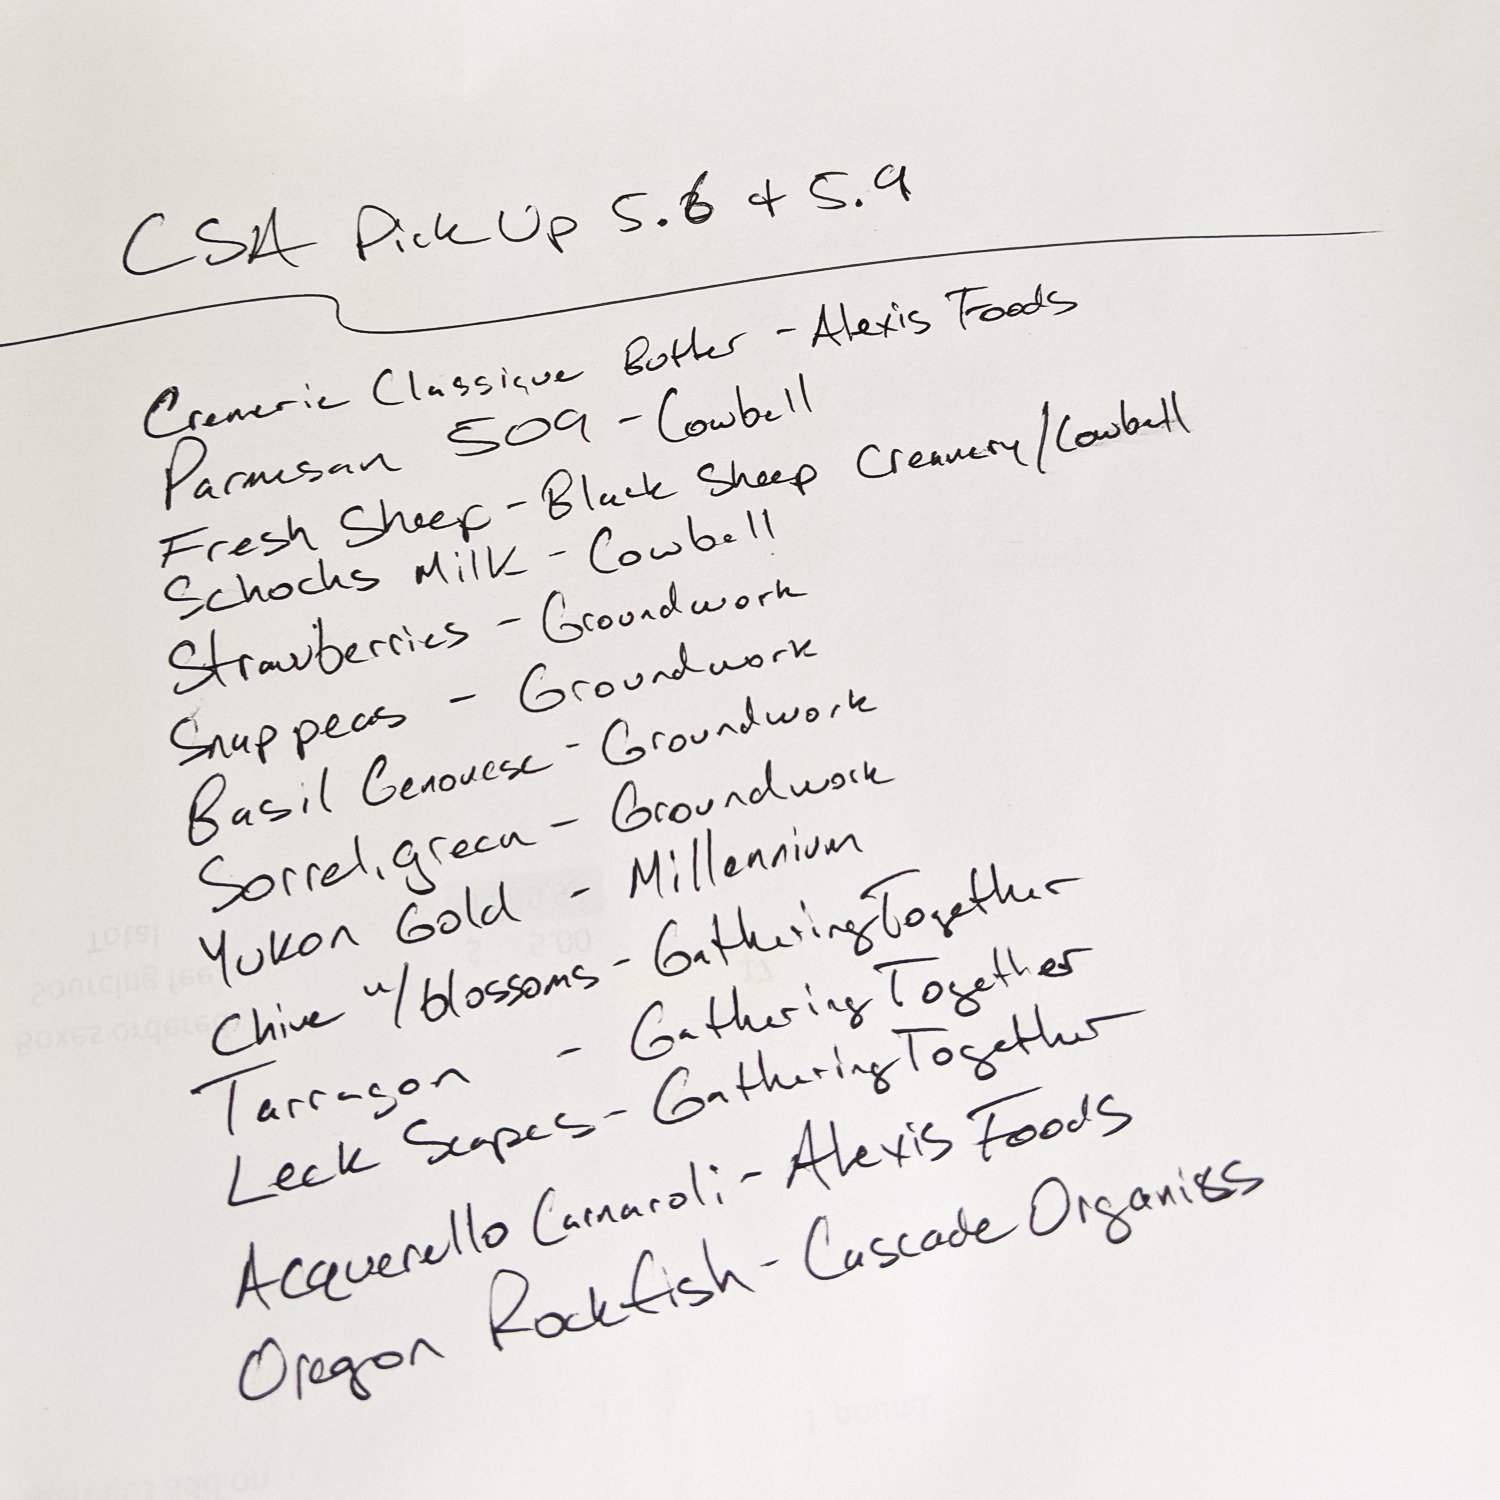 CSA Pick Up 5.6 + 5.9
Cremerie Classique Butter - Alexis Foods
Parmesan 509 - Cowbell
Fresh Sheep - Black Sheep Creamery/Cowbell
Schochs Milk - Cowbell
Strawberries - Groundwork
Snap peas - Groundwork
Basil Genovese - Groundwork
Sorrel, green - Groundwork
Yukon Gold - Millennium
Chive w/blossoms - Gathering Together
Tarragon - Gathering Together
Leek Scapes - Gathering Together
Acquerello Carnaroli - Alexis Foods
Oregon Rockfish - Cascade Organiss
Total
$ 5.00
Sourcing fee
17
Boxes ordered
1 pound
add on